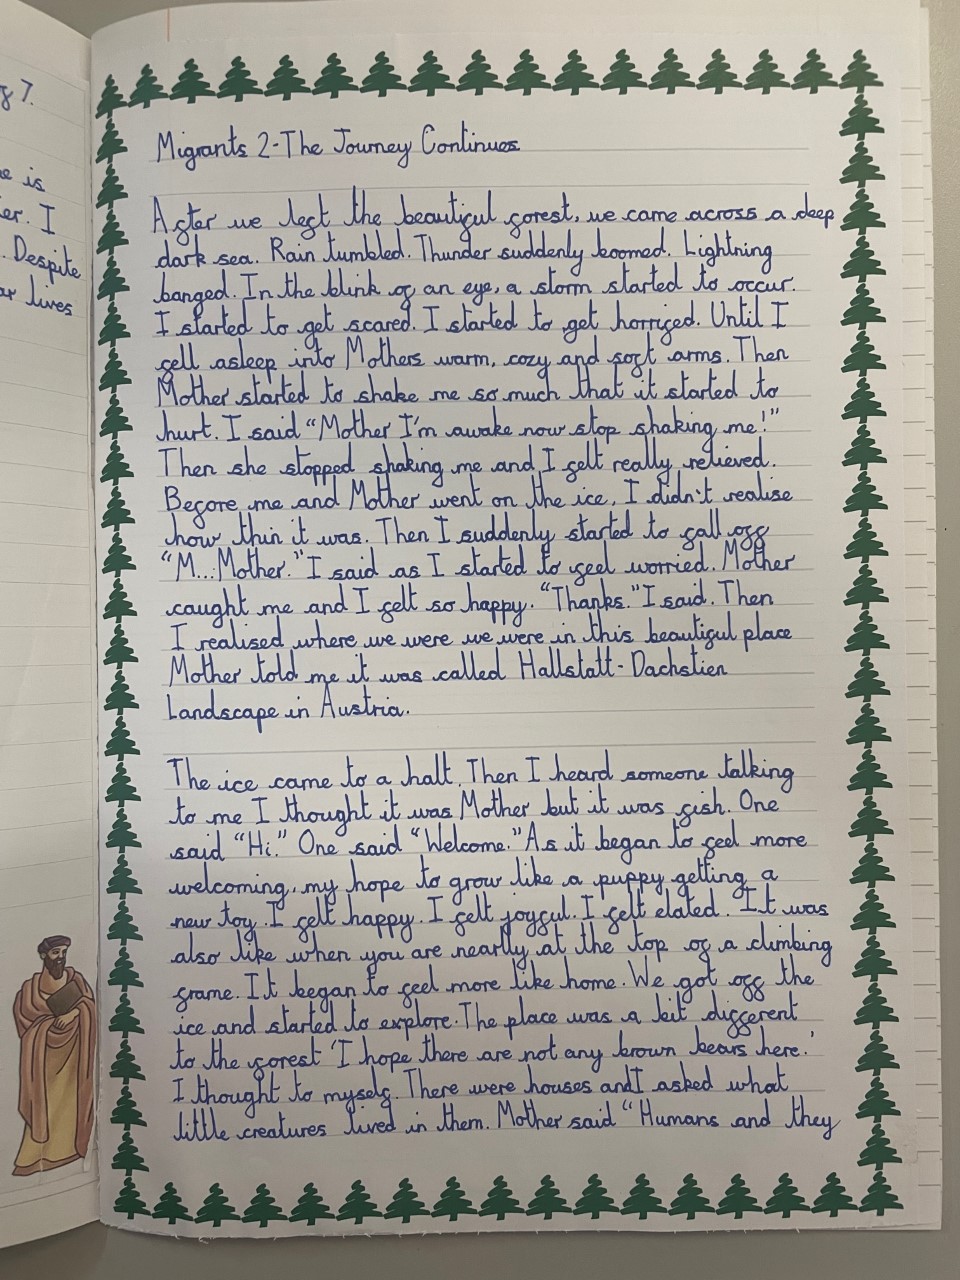 g 7.
e is
er. I
. Despite
ar lives
Migrants 2-The Journey Continues
After we left the beautiful forest, we came across a deep
dark sea. Rain tumbled. Thunder suddenly boomed. Lightning
banged. In the blink of an eye, a storm started to occur.
I started to get scared. I started to get horrifed. Until I
fell asleep into Mothers warm, cozy and soft arms. Then
Mother started to shake me so much that it started to
hurt. I said "Mother I'm awake now stop shaking me!"
Then she stopped shaking me and I felt really relieved.
Before me and Mother went on the ice, I didn't realise
how thin it was. Then I suddenly started to fall off
"M...Mother." I said as I started to feel worried. Mother
caught me and I felt so happy. "Thanks." I said. Then
I realised where we were we were in this beautiful place
Mother told me it was called Hallstatt-Dachstien
Landscape in Austria.
The ice came to a halt. Then I heard someone talking
to me I thought it was Mother but it was fish. One
said "Hi." One said "Welcome." As it began to feel more
welcoming, my hope to grow like a puppy getting a
new toy. I felt happy. I felt joyful. I felt elated. It was
also like when you are nearlly at the top of a climbing
frame. It began to feel more like home. We got off the
ice and started to explore. The place was a bit different
to the forest 'I hope there are not any brown bears here.'
I thought to myself. There were houses and I asked what
little creatures lived in them. Mother said "Humans and they